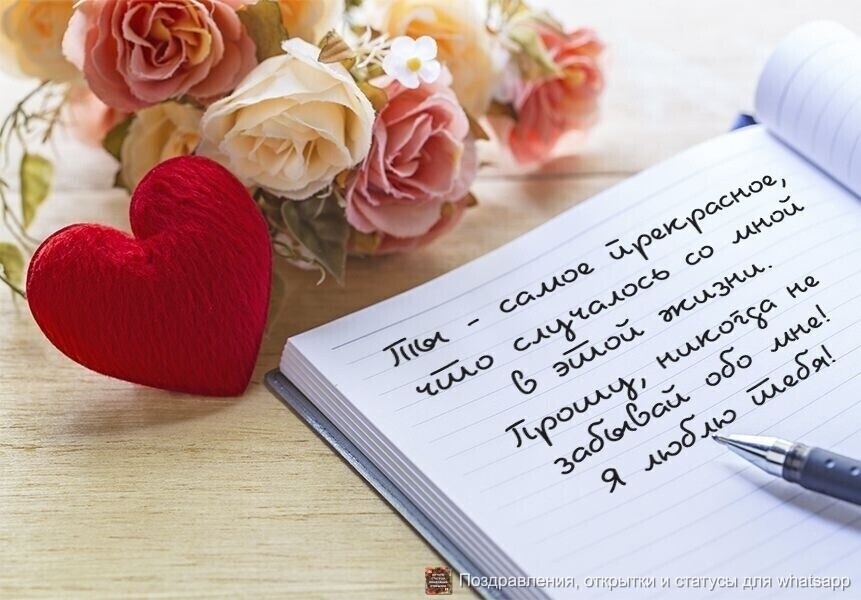 Ты - самое прекрасное,
что случалось со мной
в этой жизни.
Прошу, никогда не
забывай обо мне!
Я люблю тебя!
Поздравления, открытки и статусы для whatsapp